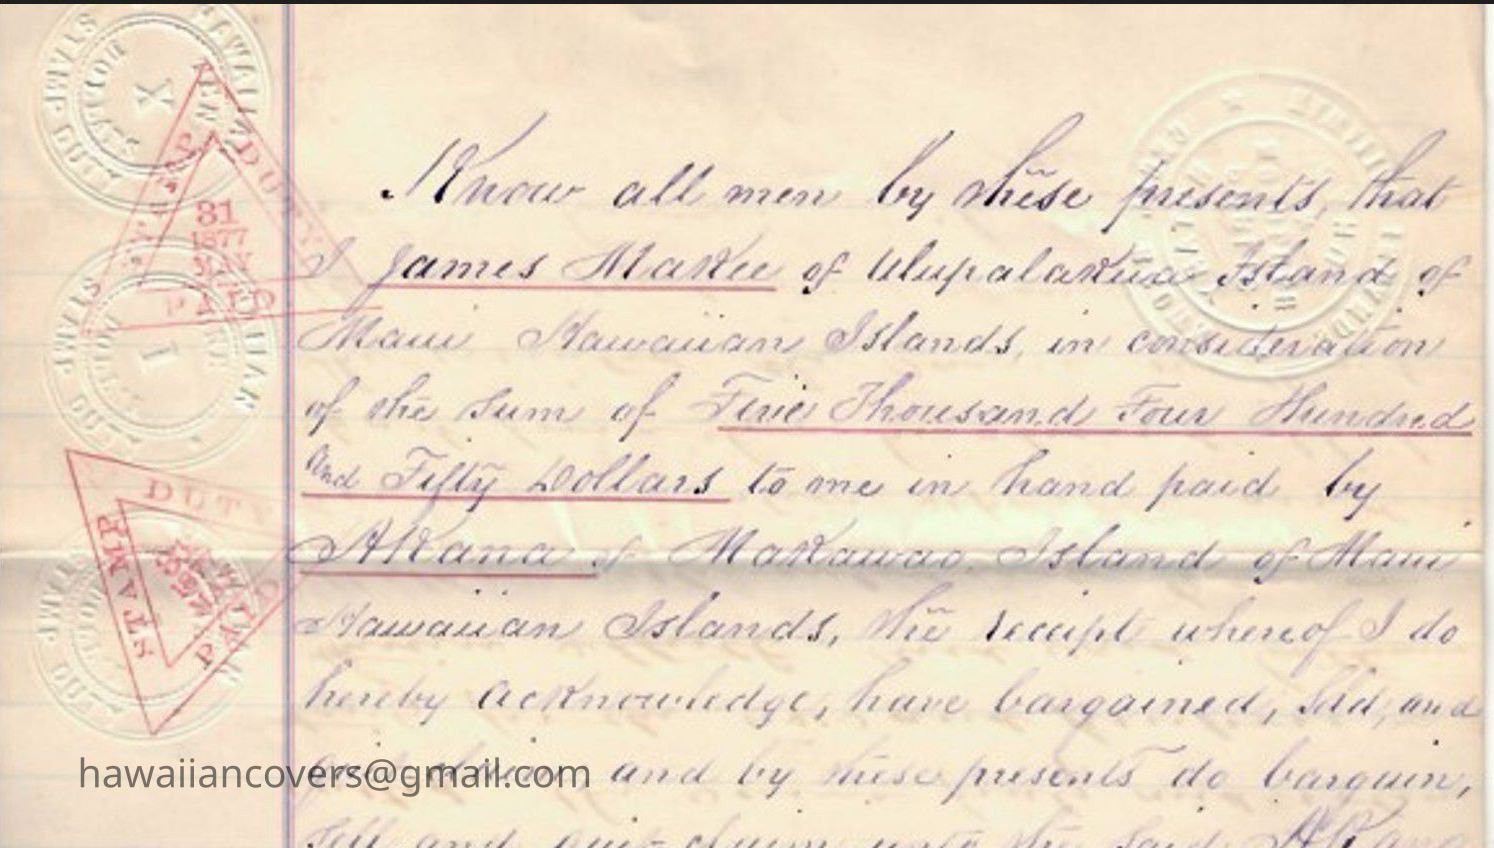 HAWAIIAN
STAMP DUTY
X
STAMP DUTY
31
1877
MAY
PAID
HAWAIIAN
STAMP DUTY
1
STAMP DUTY
PAID
Know all men by these presents, that
I James Makee of Ulupalakua Island of
Maui Hawaiian Islands, in consideration
of the sum of Five Thousand Four Hundred
and Fifty Dollars to me in hand paid by
Akana of Makawao, Island of Maui
Hawaiian Islands, the receipt whereof I do
hereby acknowledge, have bargained, sold, and
and by these presents do bargain,
sell and quit-claim unto the said Akana
hawaiiancovers@gmail.com